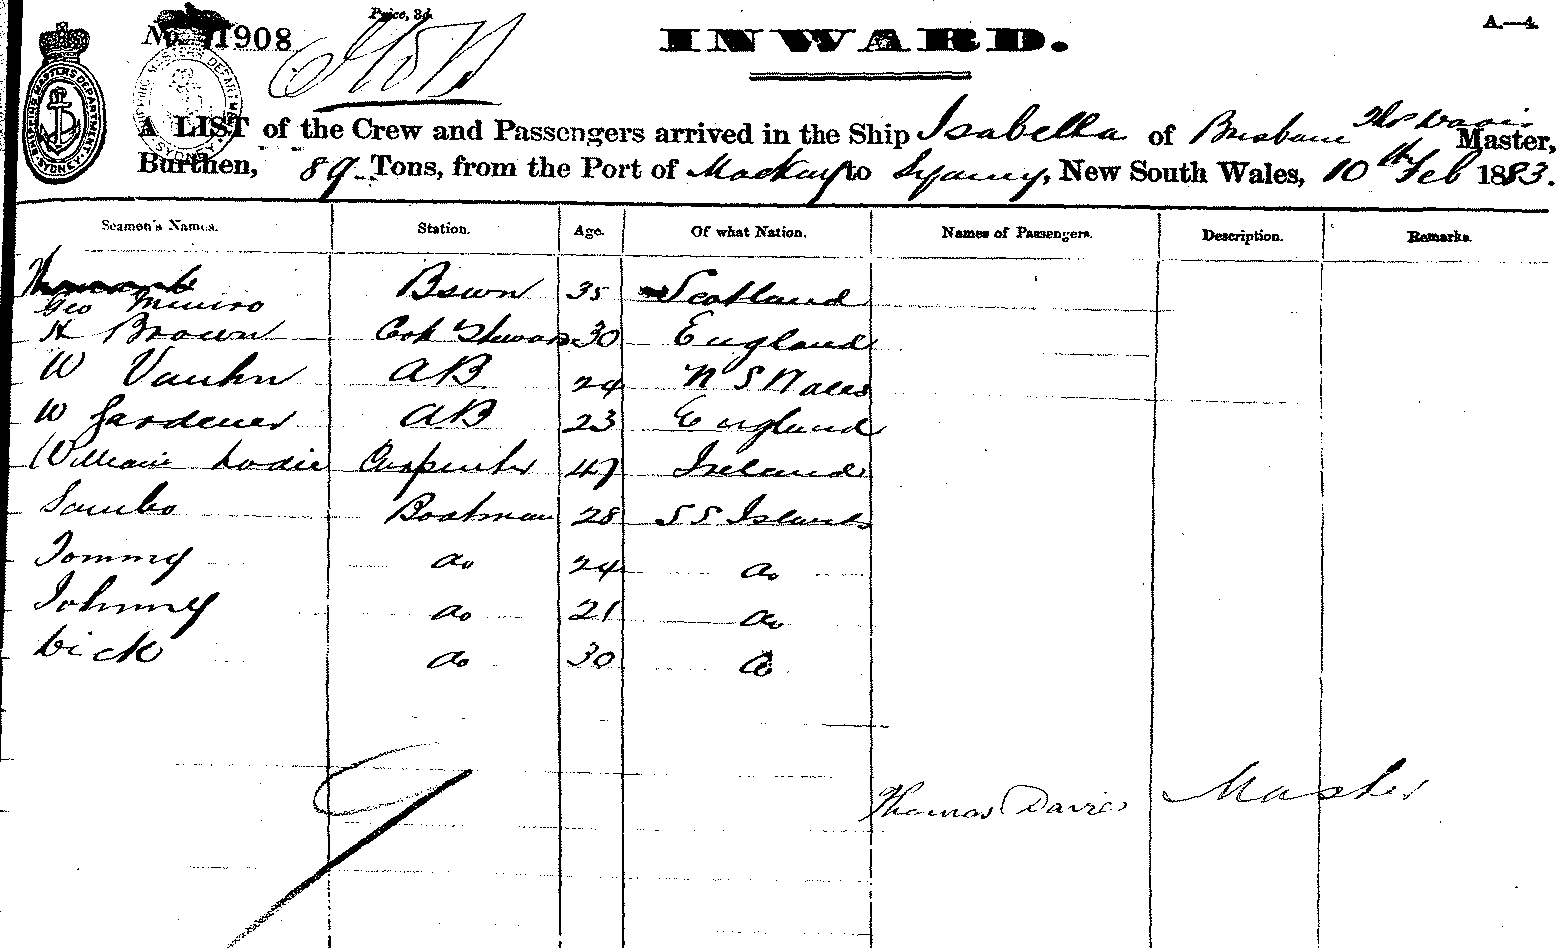 Price, 3d.
No. 11908
INWARD.
A.—4.
SHIPPING MASTERS DEPARTMENT SYDNEY
A LIST of the Crew and Passengers arrived in the Ship Isabella of Brisbane Thos Davis Master,
Burthen, 89 Tons, from the Port of Mackay to Sydney, New South Wales, 10th Feb 1883.
Seamen's Names. Station. Age. Of what Nation. Names of Passengers. Description. Remarks.
Geo Munro Bswn 35 Scotland
H Brown Cook Steward 30 England
W Vauhn AB 24 N S Wales
W Gardener AB 23 England
William Lodie Carpenter 47 Ireland
Sambo Boatman 28 S S Islands
Tommy do 24 do
Johnny do 21 do
Dick do 30 do
Thomas Davies Master